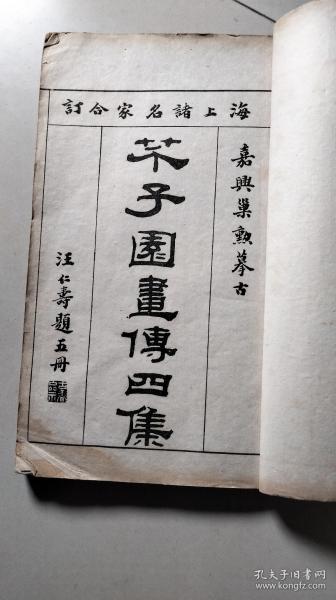 海上諸名家合訂
嘉興巢勲摹古
芥子園畫傳四集
汪仁壽題五冊
孔夫子旧书网